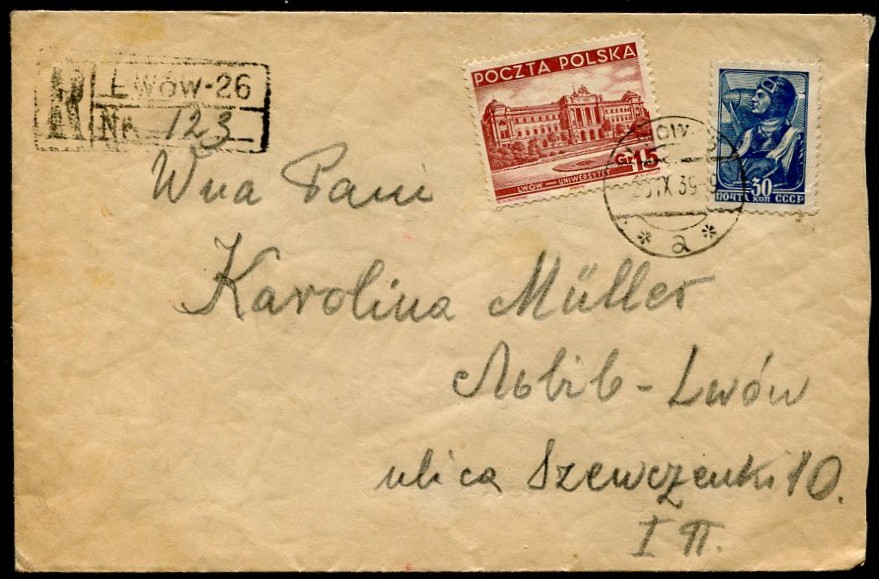 R LWÓW-26
Nr. 123
POCZTA POLSKA
Gr 15
LWÓW — UNIWERSYTET
30
ПОЧТА КОП СССР
IX 39-9
* a *
Wna Pani
Karolina Müller
Львів - Lwów
ulica Szewczenki 10.
I п.